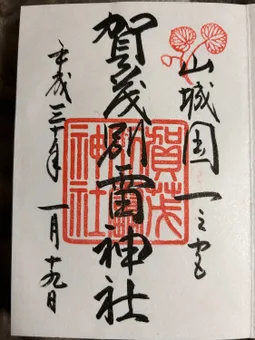 山城国一之宮
賀茂別雷神社
平成三十年 一月十九日
賀茂
別雷
神社